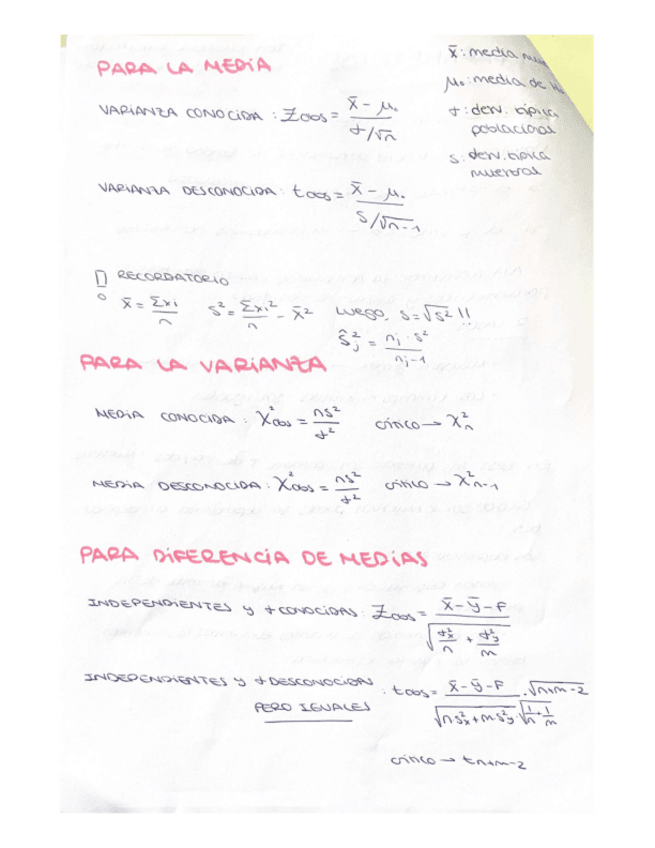 PARA LA MEDIA
x̄: media mue
μ₀: media de H₀
σ: desv. típica
poblacional
s: desv. típica
muestral
VARIANZA CONOCIDA: Zobs = (x̄ - μ₀) / (σ/√n)
VARIANZA DESCONOCIDA: tobs = (x̄ - μ₀) / (s/√n-1)
RECORDATORIO
x̄ = Σxi / n   s² = Σxi² / n - x̄²   Luego, s = √s² !!
ŝj² = nj · s² / nj-1
PARA LA VARIANZA
MEDIA CONOCIDA: χ²obs = ns² / σ²   crítico → χ²n
MEDIA DESCONOCIDA: χ²obs = ns² / σ²   crítico → χ²n-1
PARA DIFERENCIA DE MEDIAS
INDEPENDIENTES y σ CONOCIDAS: Zobs = (x̄ - ȳ - δ) / √(σ²x/n + σ²y/m)
INDEPENDIENTES y σ DESCONOCIDAS
PERO IGUALES : tobs = (x̄ - ȳ - δ) / (√(ns²x + ms²y) · √(1/n + 1/m)) · √n+m-2
crítico → tn+m-2